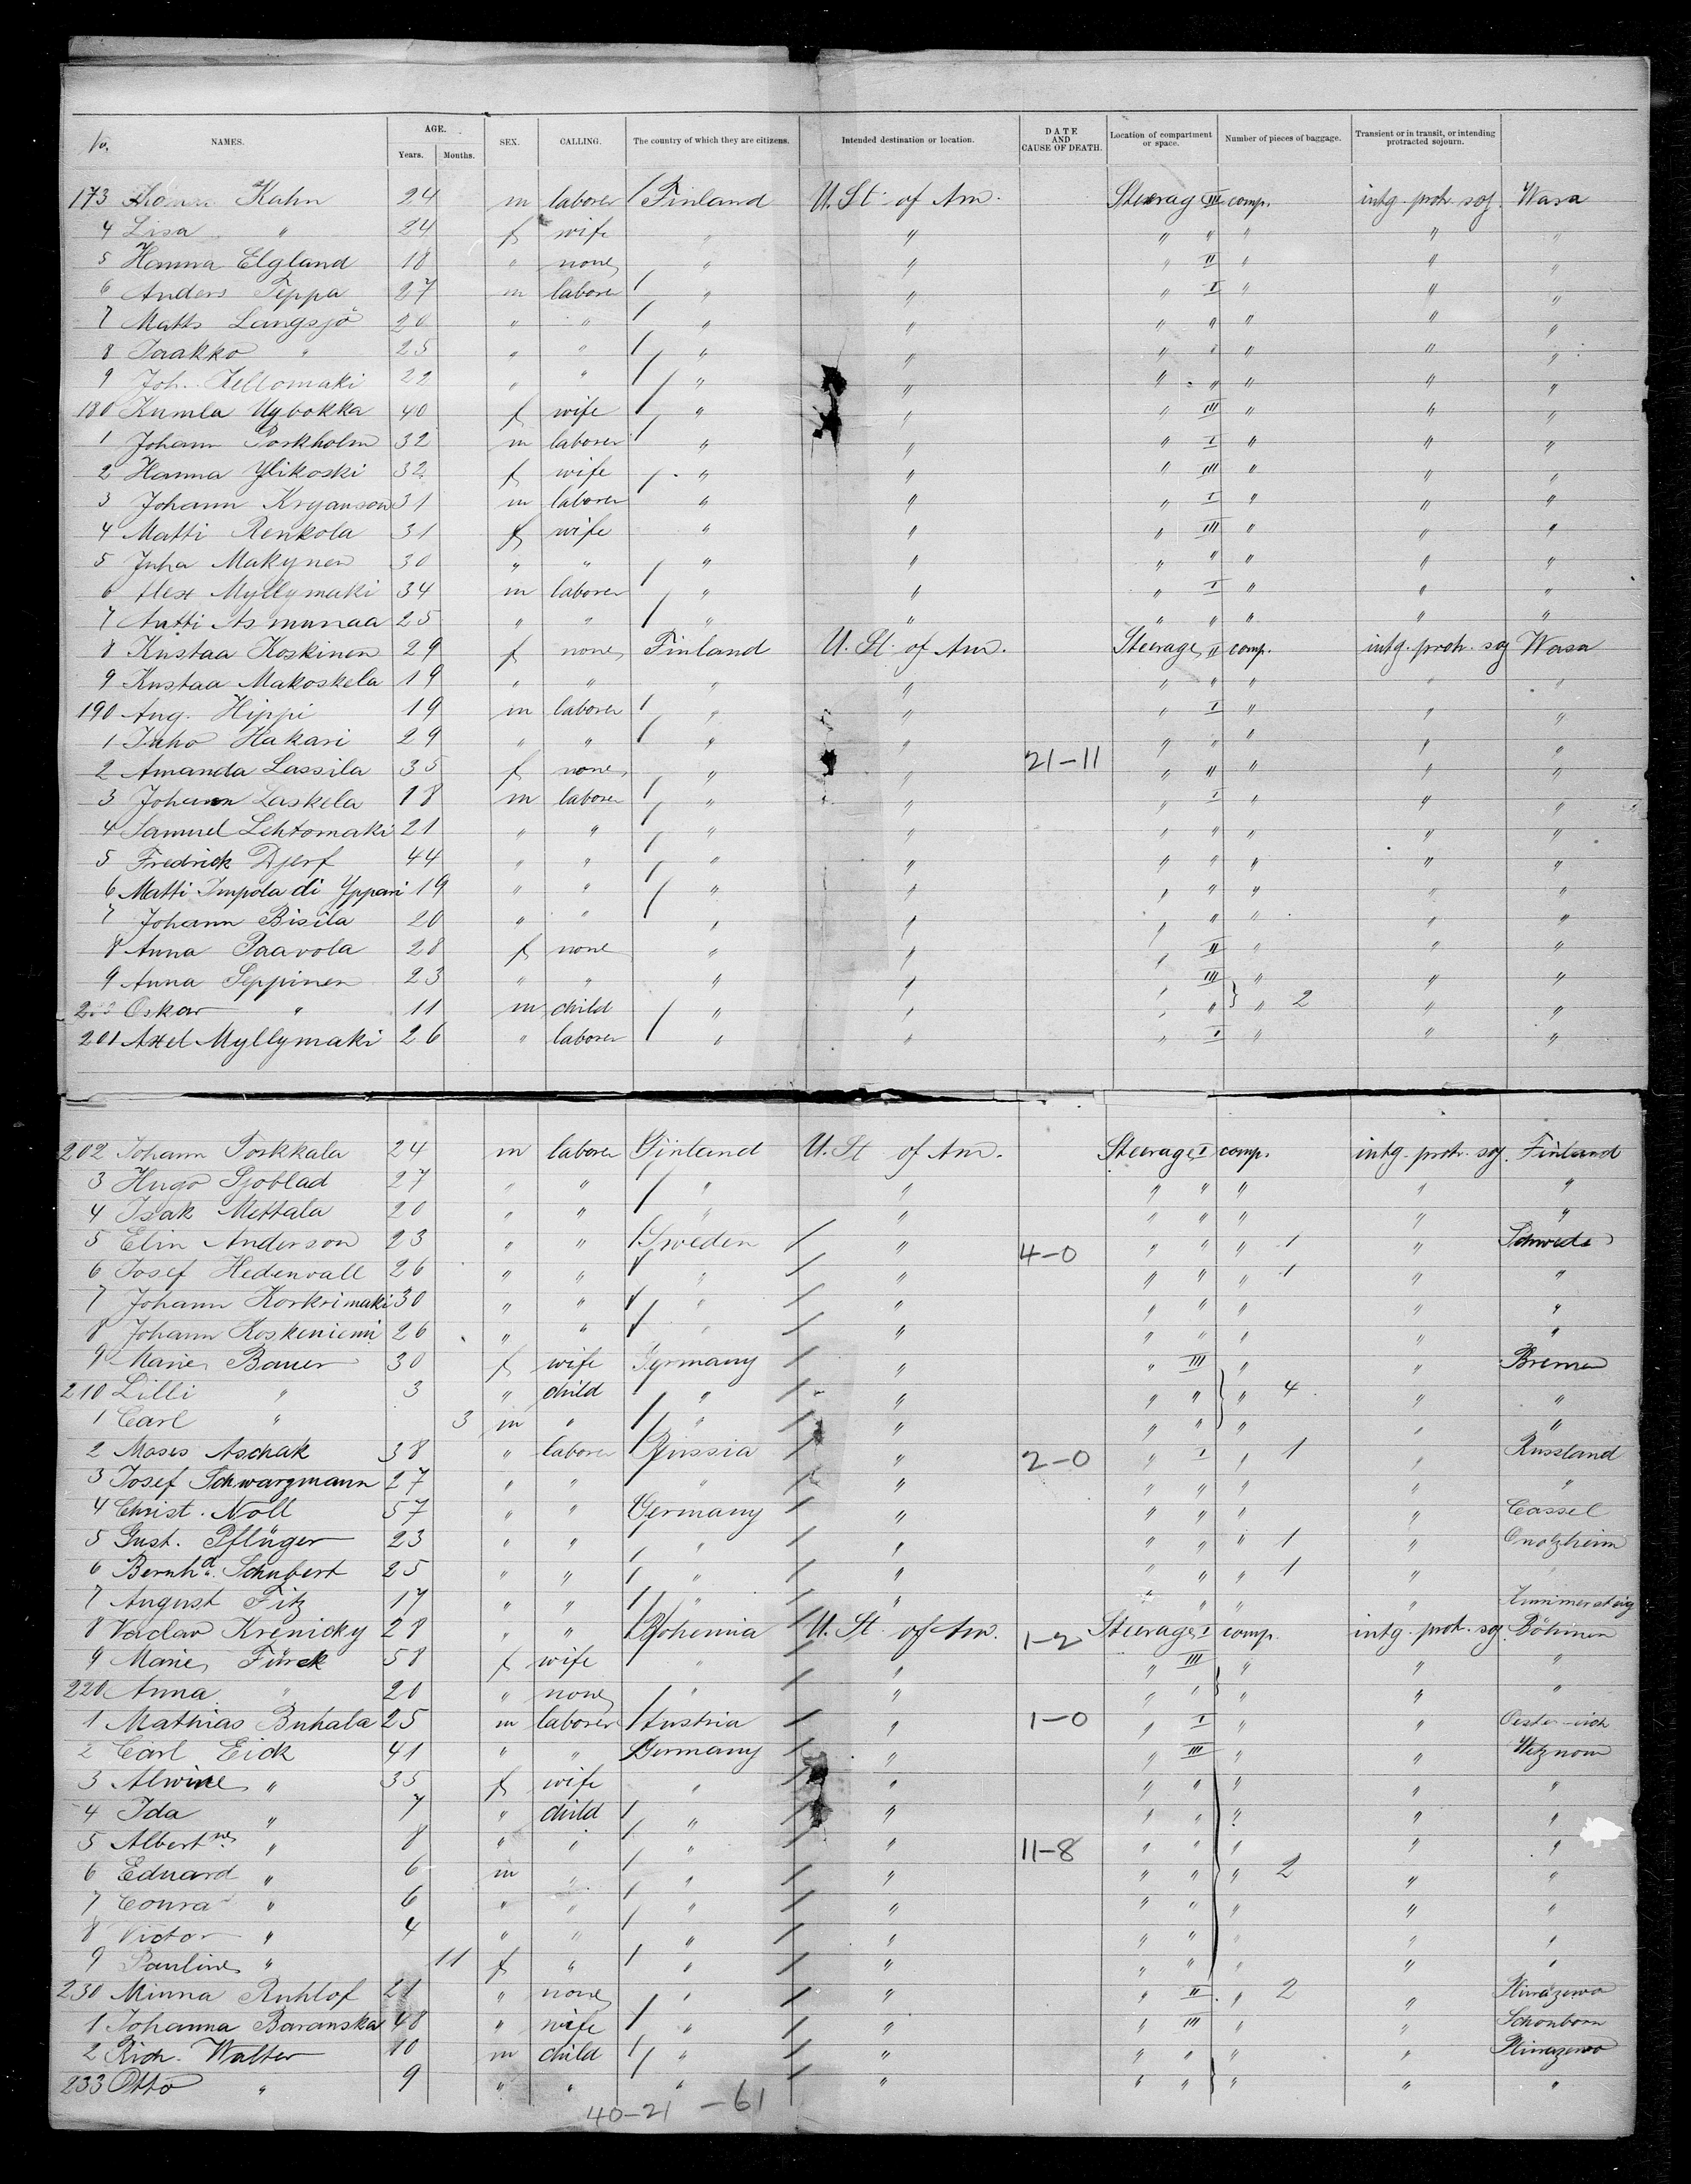 No. NAMES. AGE. Years. Months. SEX. CALLING. The country of which they are citizens. Intended destination or location. DATE AND CAUSE OF DEATH. Location of compartment or space. Number of pieces of baggage. Transient or in transit, or intending protracted sojourn.
173 Kahn 24 m laborer Finland U. St. of Am. Steerag III comp. intg. protr. soj. Wasa
4 Lisa " 24 f wife " " " " " " "
5 Hanna Elgland 18 " none " " " II " " "
6 Anders Teppa 27 m laborer " " " I " " "
7 Matts Langsjö 20 " " " " " " " " "
8 Jaakko " 25 " " " " " " " " "
9 Joh. Kellomaki 22 " " " " " " " " "
180 Kumla Uybokka 40 f wife " " " III " " "
1 Johann Porkholm 32 m laborer " " " I " " "
2 Hanna Ylikoski 32 f wife " " " III " " "
3 Johann Kryanson 31 m laborer " " " I " " "
4 Matti Renkola 31 f wife " " " III " " "
5 Juha Makynen 30 " " " " " " " " "
6 Alex Myllymaki 34 m laborer " " " I " " "
7 Antti Asmunaa 25 " " " " " " " " "
8 Kustaa Koskinen 29 f none Finland U. St. of Am. Steerage II comp. intg. protr. soj Wasa
9 Kustaa Makoskela 19 " " " " " " " " "
190 Aug. Hippi 19 m laborer " " " I " " "
1 Juho Hakari 29 " " " " " " " " "
2 Amanda Lassila 35 f none " " 21-11 " " " " "
3 Johann Laskela 18 m laborer " " " I " " "
4 Samuel Lehtomaki 21 " " " " " " " " "
5 Fredrick Djerf 44 " " " " " " " " "
6 Matti Impola di Yppari 19 " " " " " " " " "
7 Johann Bisila 20 " " " " " " " " "
8 Anna Paavola 28 f none " " " II " " "
9 Anna Seppinen 23 " " " " " III " " "
Oskar " 11 m child " " " " " 2 " "
201 Axel Myllymaki 26 " laborer " " " I " " "
202 Johann Porkkala 24 m laborer Finland U. St. of Am. Steerage I comp. intg. protr. soj. Finland
3 Hugo Sjoblad 27 " " " " " " " " "
4 Isak Mettala 20 " " " " " " " " "
5 Elin Anderson 23 " " Sweden " 4-0 " " " 1 " Schwede
6 Josef Hedenvall 26 " " " " " " " 1 " "
7 Johann Korkrimaki 30 " " " " " " " " "
8 Johann Koskeniemi 26 " " " " " " " " "
9 Marie Bauer 30 f wife Germany " " III " " Bremen
210 Lilli " 3 " child " " " " " 4 " "
1 Carl " 3 m " " " " " " " "
2 Moses Aschak 38 " laborer Russia " 2-0 " I " 1 " Russland
3 Josef Schwarzmann 27 " " " " " " " " "
4 Christ. Noll 57 " " Germany " " " " " Cassel
5 Gust. Pflüger 23 " " " " " " " 1 " Onolzheim
6 Bernhd. Schubert 25 " " " " " " " 1 "
7 August Fitz 17 " " " " " " " " Zimmersteig
8 Vaclav Krenicky 28 " " Bohemia U. St. of Am. 1-2 Steerage I comp. intg. protr. soj. Böhmen
9 Marie Fürek 58 f wife " " " III " " "
220 Anna " 20 " none " " " " " " "
1 Mathias Buhala 25 m laborer Austria " 1-0 " I " "
2 Carl Eick 41 " " Germany " " III " "
3 Alwine " 35 f wife " " " " " " "
4 Ida " 7 " child " " " " " " "
5 Albertne " 8 " " " " 11-8 " " " " "
6 Eduard " 6 m " " " " " " 2 " "
7 Conra " 6 " " " " " " " " "
8 Victor " 4 " " " " " " " " "
9 Pauline " 11 f " " " " " " " "
230 Minna Ruhlof 21 " none " " " II " 2 "
1 Johanna Baranska 48 " wife " " " III " " Schonborn
2 Rich. Walter 10 m child " " " " " "
233 Otto " 9 " " " " " " " " "
40-21-61